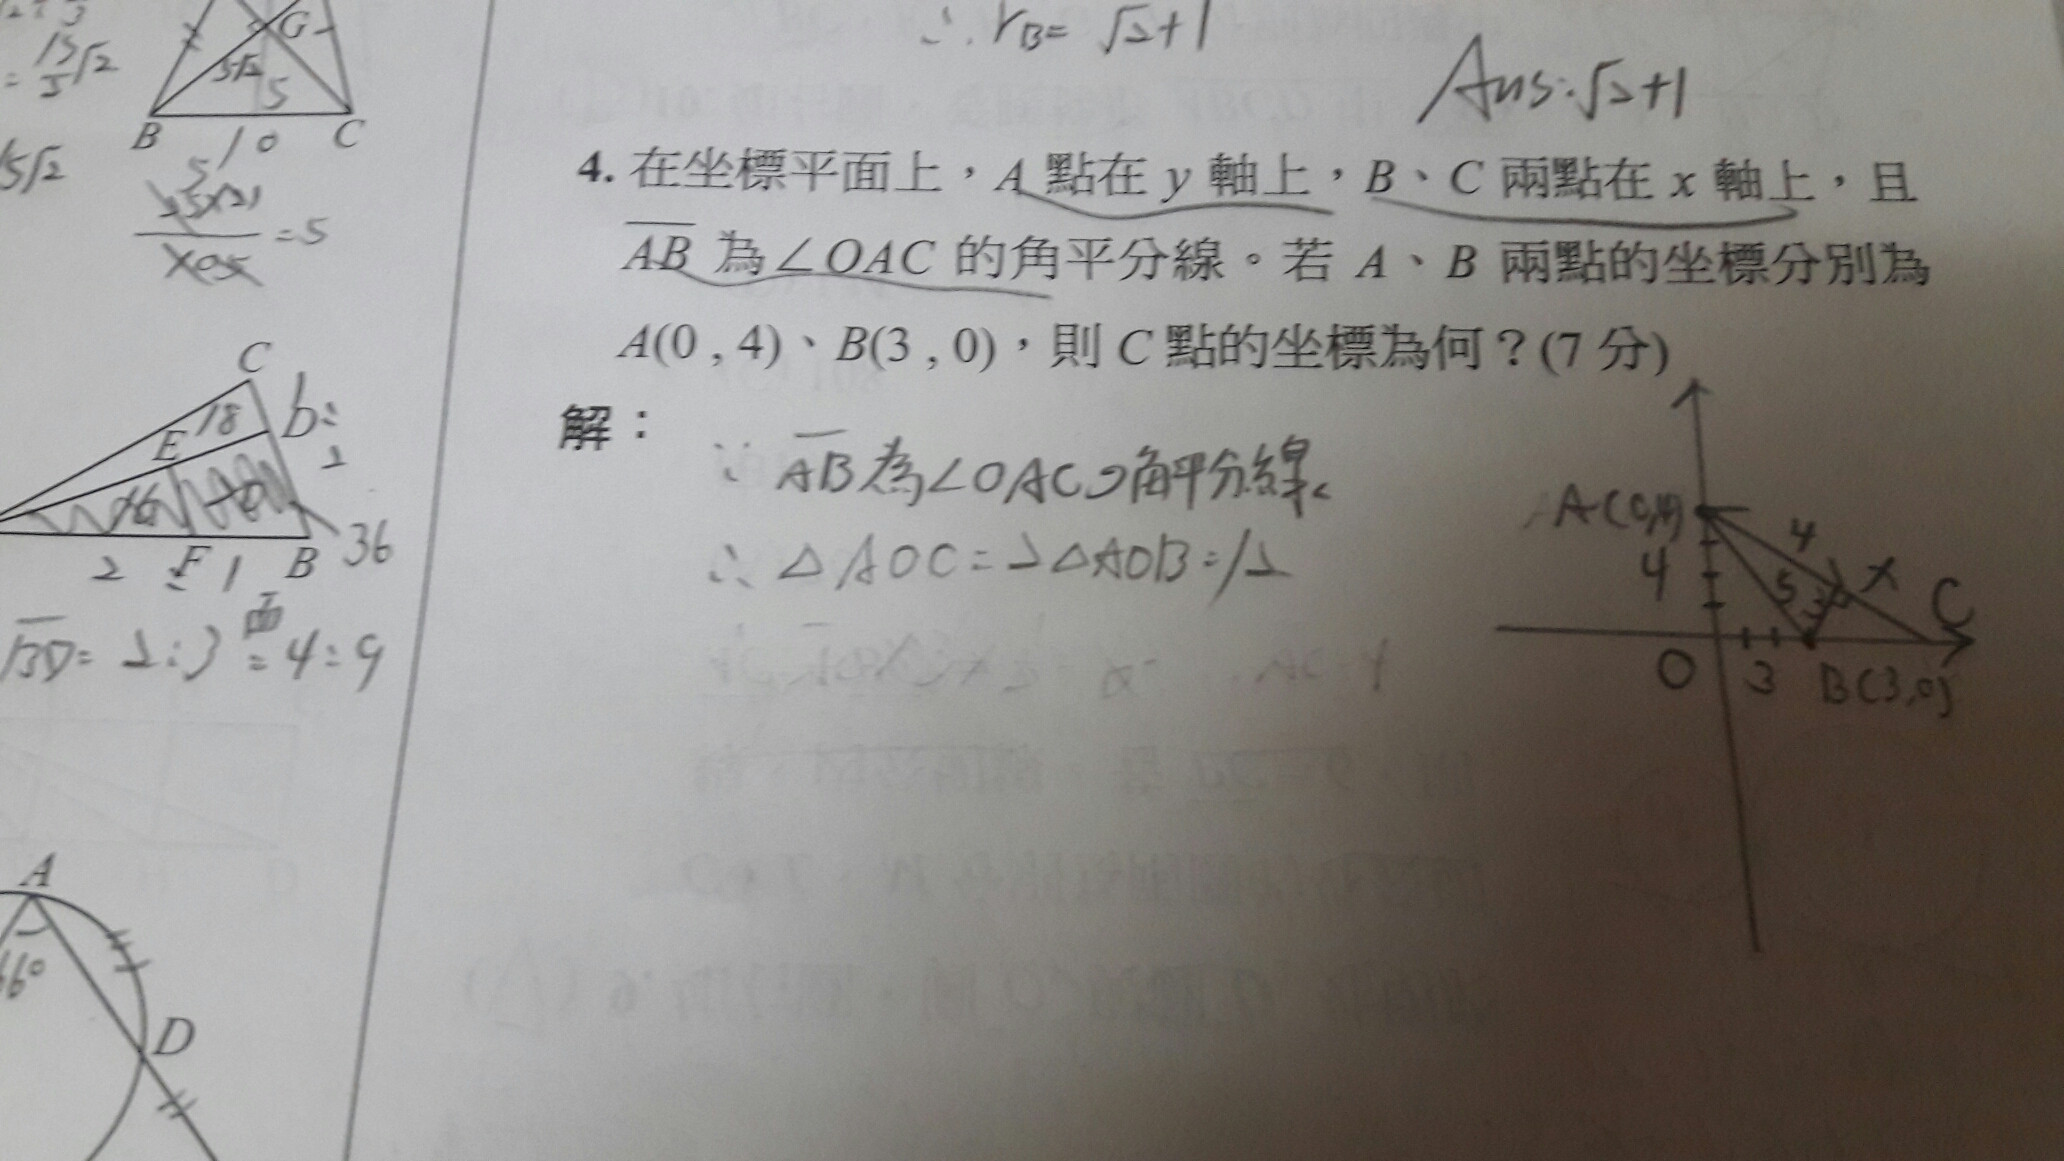 ∴ r_B = √2+1
Ans: √2+1
G
5√2
5
B
10
C
= 5
15√2
4. 在坐標平面上，A 點在 y 軸上，B、C 兩點在 x 軸上，且
AB 為∠OAC 的角平分線。若 A、B 兩點的坐標分別為
A(0 , 4)、B(3 , 0)，則 C 點的坐標為何？(7 分)
解：
∵ AB為∠OAC之角平分線
∴ △AOC=2△AOB=12
A(0,4)
4
4
5
3
x
C
O
3
B(3,0)
C
18
E
b:
2
36
2
F
1
B
BD= 2:3 面= 4:9
A
66°
D